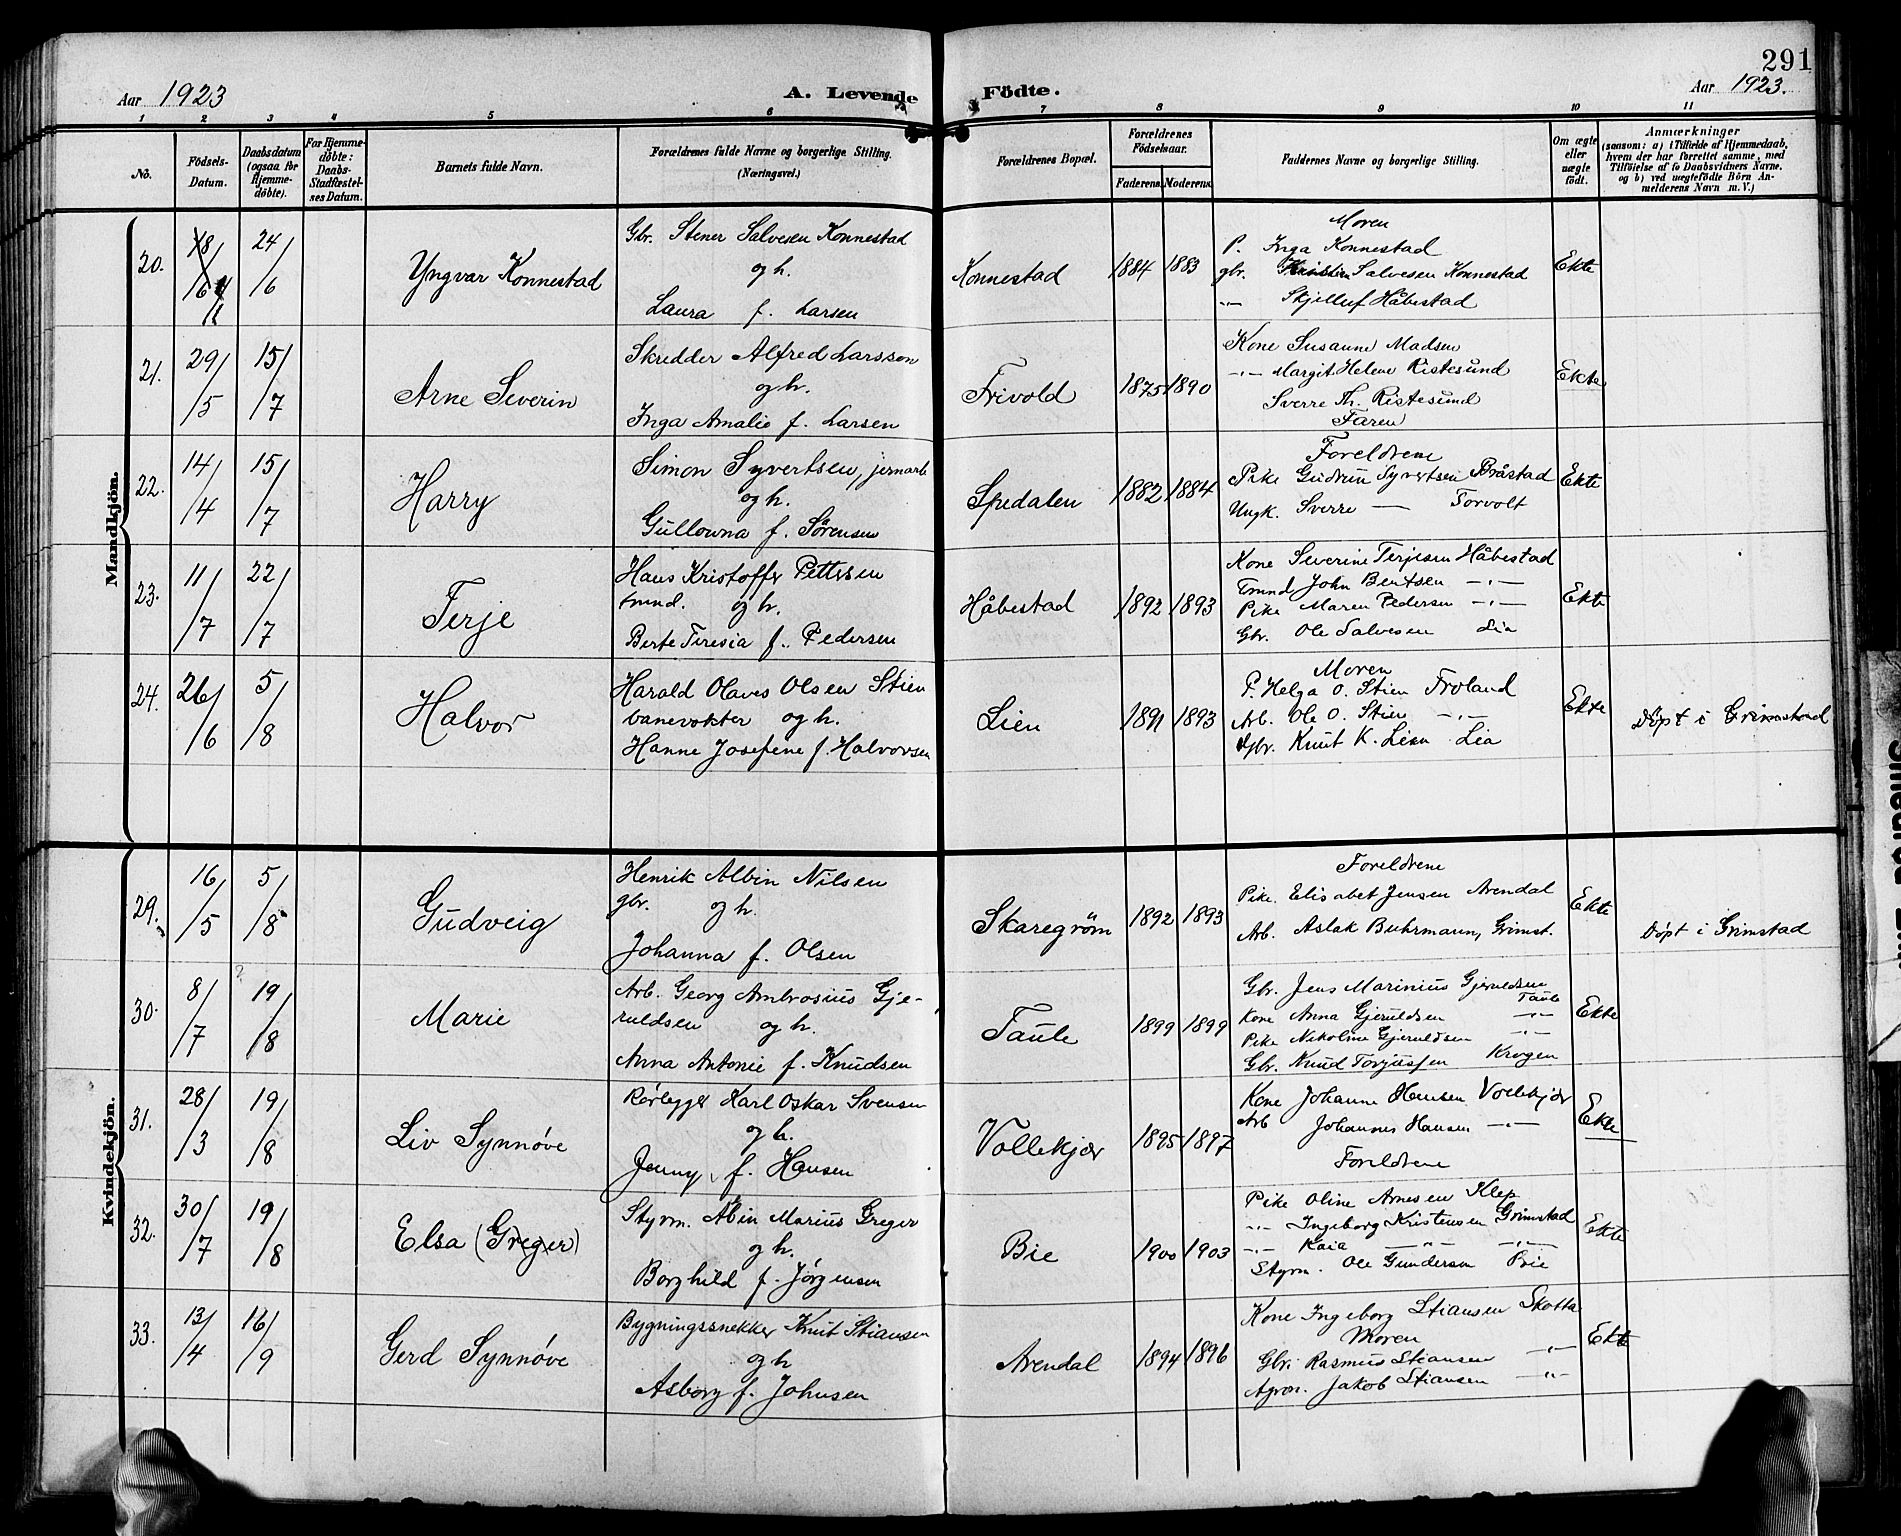 291
Aar 1923
A. Levende Födte.
Aar 1923.
1 2 3 4 5 6 7 8 9 10 11
No.
Födsels-Datum.
Daabsdatum (ogsaa for Hjemme-döbte).
For Hjemme-döbte: Daabs-Stadfæstel-ses Datum.
Barnets fulde Navn.
Forældrenes fulde Navne og borgerlige Stilling. (Næringsvei.)
Forældrenes Bopæl.
Forældrenes Födselsaar.
Faderens. Moderens.
Faddernes Navne og borgerlige Stilling.
Om ægte eller uægte födt.
Anmærkninger
(saasom: a) i Tilfælde af Hjemmedaab,
hvem der har forrettet samme, med
Tilföielse af to Daabsvidners Navne.
og b) ved uægtefödte Börn An-
melderens Navn m. V.)
Mandkjön.
20. 24/6 Yngvar Konnestad
Gbr. Stener Salvesen Konnestad
og h.
Laura f. Larsen
Konnestad 1884 1883
Moren
P. Inga Konnestad
gbr. Salvesen Konnestad
-"- Skjelluf Håbestad
Ekte
21. 29/5 15/7 Arne Severin
Skredder Alfred Larsson
og h.
Inga Amalie f. Larsen
Frivold 1875 1890
Kone Susanne Madsen
-"- Margit Helene Ristesund
Sverre Th. Ristesund
Faren
Ekte
22. 14/4 15/7 Harry
Simon Syvertsen, jernarb
og h.
Gullowna f. Sørensen
Spedalen 1882 1884
Foreldrene
Pike Gudrun Syvertsen Bråstad
Ungk. Sverre — Torvolt
Ekte
23. 11/7 22/7 Terje
Hans Kristoffer Pettersen
tmnd. og h.
Berte Teresia f. Pedersen
Håbestad 1892 1893
Kone Severine Terjesen Håbestad
Tmnd John Bentsen -"-
Pike Maren Pedersen -"-
Gbr. Ole Salvesen Lia
Ekte
24. 26/6 5/8 Halvor
Harald Olaves Olsen Stien
banevokter og h.
Hanne Josefene f. Halvorsen
Lien 1891 1893
Moren
P. Helga O. Stien Froland
Arb. Ole O. Stien -"-
Gbr. Knut K. Lien Lia
Ekte
Døpt i Grimstad
Kvindekjön.
29. 16/5 5/8 Gudveig
Henrik Albin Nilsen
gbr. og h.
Johanna f. Olsen
Skaregrøm 1892 1893
Foreldrene
Pike. Elisabet Jensen Arendal
Arb. Aslak Buhrmann, Grimst.
Ekte
Døpt i Grimstad
30. 8/7 19/8 Marie
?
Arb. Georg Ambrosius Gje-
ruldsen og h.
Anna Antonie f. Knudsen
Taule 1899 1899
Gbr. Jens Marinius Gjeruldsen
Taule
Kone Anna Gjeruldsen -"-
Pike Nikoline Gjeruldsen -"-
Gbr. Knud Torjussen Krogen
Ekte
31. 28/3 19/8 Liv Synnøve
Rørlegger Karl Oskar Svensen
og h.
Jenny f. Hansen
Vollekjær 1895 1897
Kone Johanne Hansen Vollekjær
Arb Johannes Hansen -"-
Foreldrene
Ekte
32. 30/7 19/8 Elsa (Greger)
Styrm. Albin Marius Greger
og h.
Borghild f. Jørgensen
Bie 1900 1903
Pike Oline Arnesen Klep
-"- Ingeborg Kristensen Grimstad
-"- Kaia —"— -"-
Styrm. Ole Gundersen Bie
Ekte
33. 13/4 16/9 Gerd Synnøve
Bygningssnekker Knut Stiansen
og h
Asborg f. Johnsen
Arendal 1894 1896
Kone Ingeborg Stiansen Skotta
Moren
Gbr. Rasmus Stiansen -"-
Agron. Jakob Stiansen -"-
Ekte